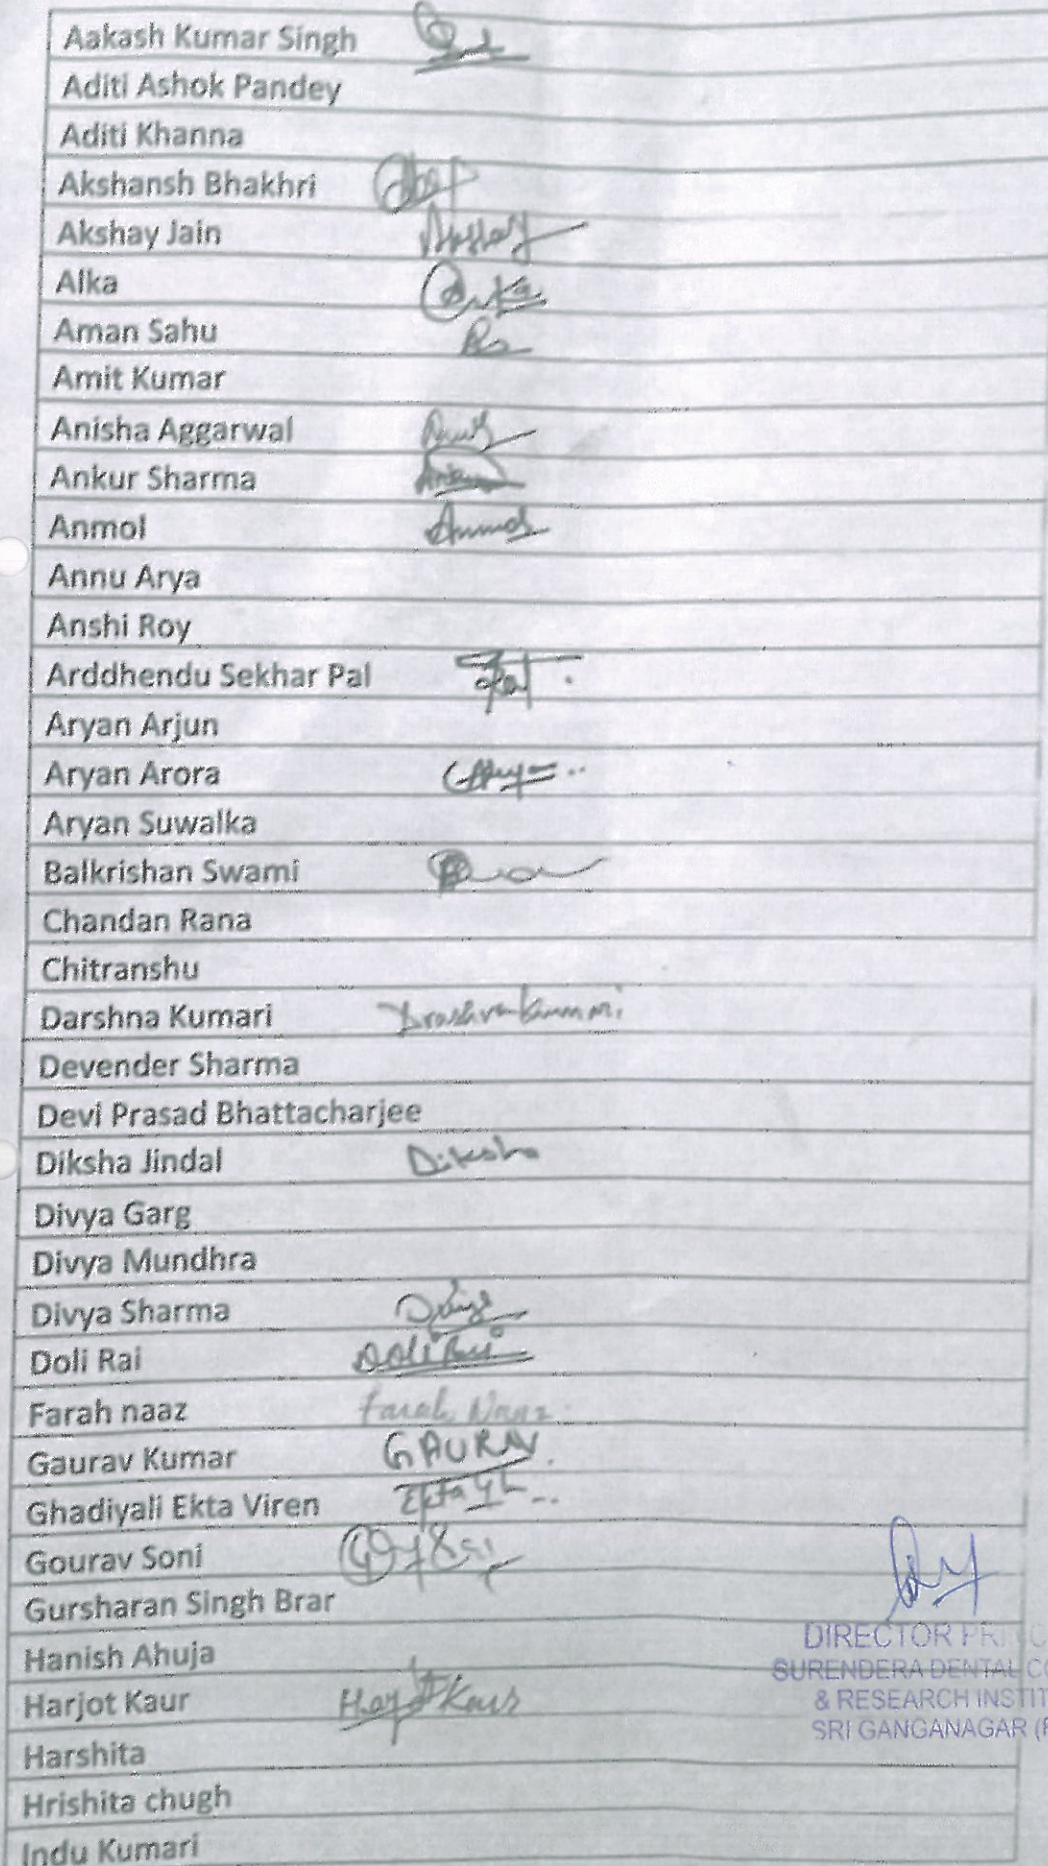 Aakash Kumar Singh
Aditi Ashok Pandey
Aditi Khanna
Akshansh Bhakhri
Akshay Jain Akshay
Alka
Aman Sahu
Amit Kumar
Anisha Aggarwal
Ankur Sharma
Anmol Anmol
Annu Arya
Anshi Roy
Arddhendu Sekhar Pal
Aryan Arjun
Aryan Arora
Aryan Suwalka
Balkrishan Swami
Chandan Rana
Chitranshu
Darshna Kumari
Devender Sharma
Devi Prasad Bhattacharjee
Diksha Jindal Diksha
Divya Garg
Divya Mundhra
Divya Sharma
Doli Rai Doli Rai
Farah naaz Farah Naaz
Gaurav Kumar GAURAV
Ghadiyali Ekta Viren Ekta
Gourav Soni
Gursharan Singh Brar
Hanish Ahuja
Harjot Kaur Harjot Kaur
Harshita
Hrishita chugh
Indu Kumari
DIRECTOR PRI
SURENDERA DENTAL CO
& RESEARCH INSTIT
SRI GANGANAGAR (R